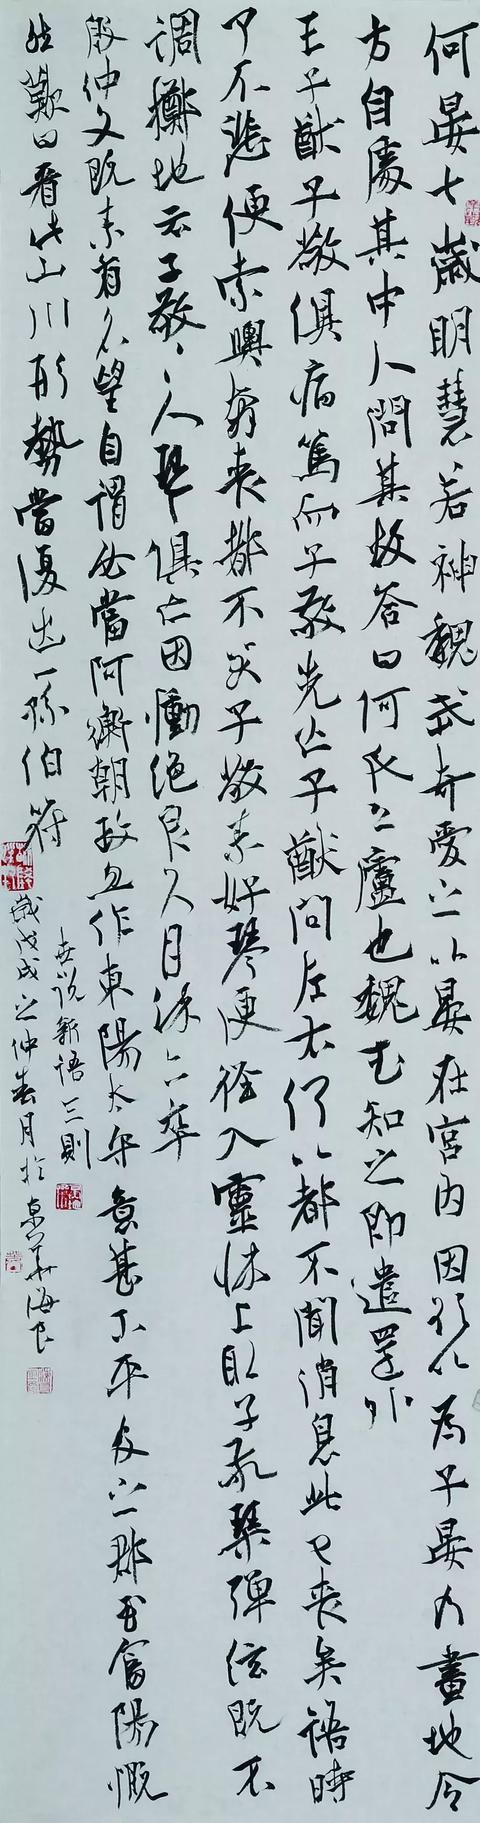 何晏七歲明慧若神魏武奇愛之以晏在宮內因欲以為子晏乃畫地令
方自處其中人問其故答曰何氏之廬也魏武知之即遣還外
王子猷子敬俱病篤而子敬先亡子猷問左右何以都不聞消息此已喪矣語時
了不悲便索輿奔喪都不哭子敬素好琴便徑入靈牀上取子敬琴彈弦既不
調擲地云子敬〻人琴俱亡因慟絕良久月餘亦卒
殷仲文既素有名望自謂必當阿衡朝政忽作東陽太守意甚不平及之郡至富陽慨
然歎曰看此山川形勢當復出一孫伯符
世說新語三則
歲戊戌之仲春月於京華海良